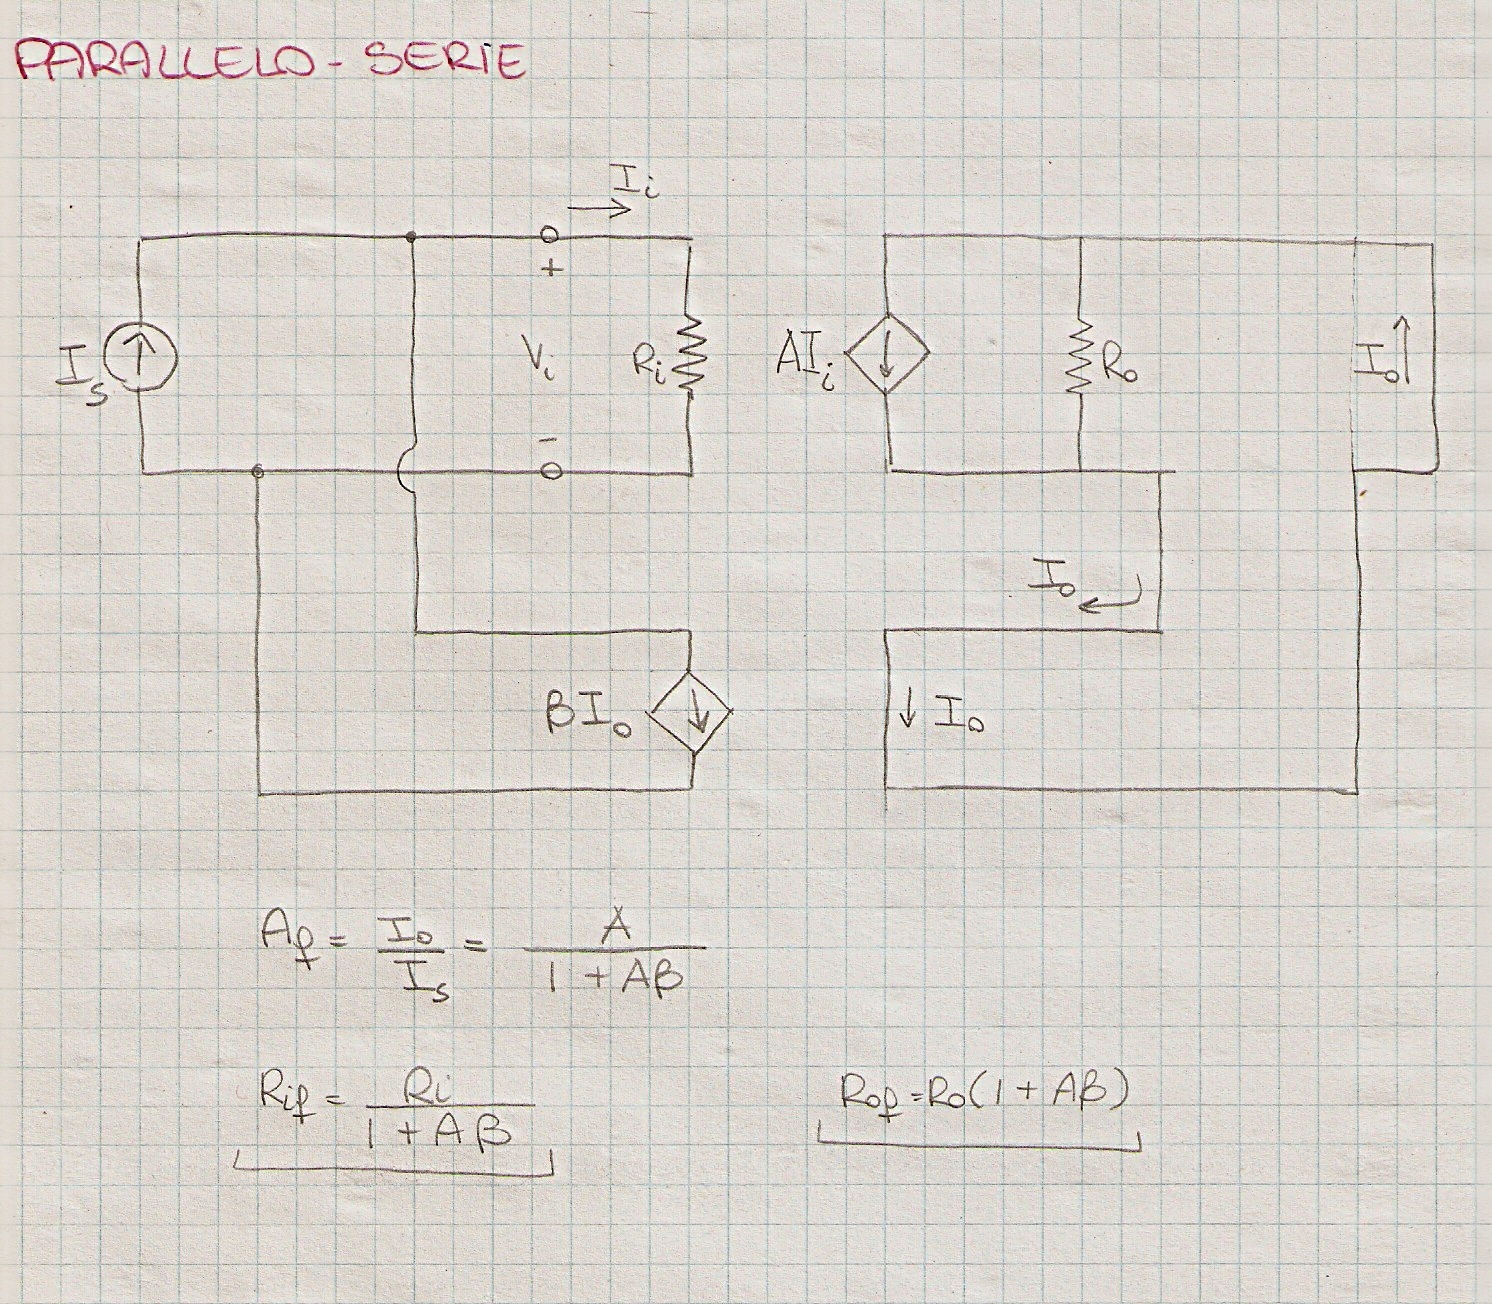 PARALLELO - SERIE
Ii
+
Is
Vi
Ri
AIi
Ro
Io
-
Io
βIo
Io
Af = Io/Is = A/(1 + Aβ)
Rif = Ri/(1 + Aβ)
Rof = Ro(1 + Aβ)